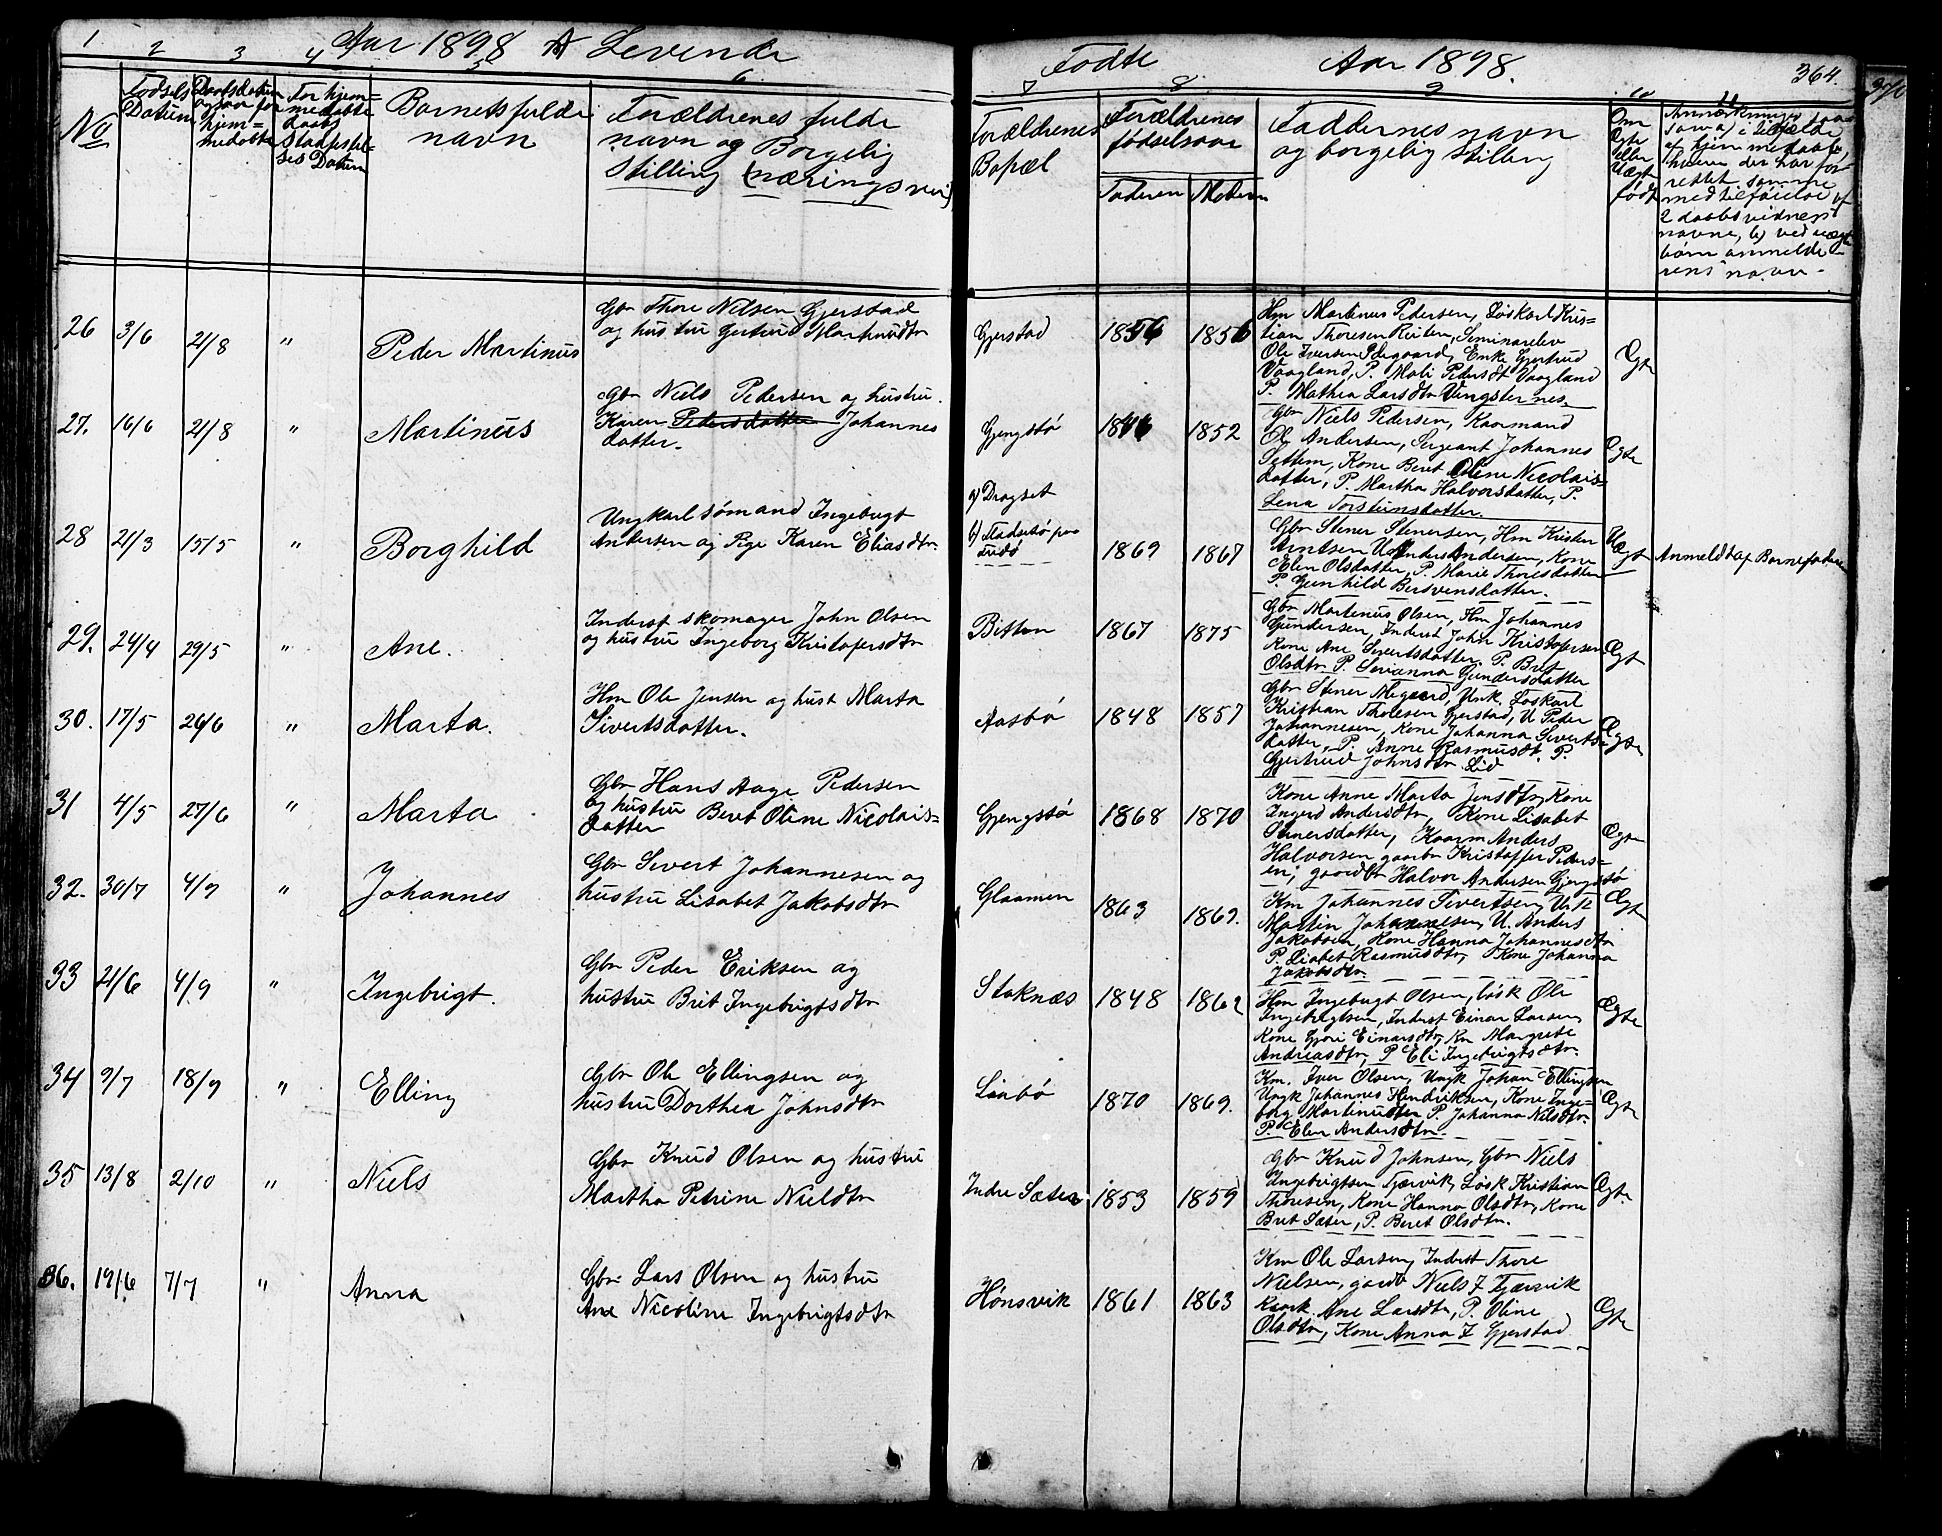 Aar 1898 A Levende
Fødte Aar 1898.
364.
1 2 3 4 5 6
7 8 9 10 11
No
Fødsels
Datum
Daabsdatum
hjem=
medøbte
For hjem=
medøbte
daabs
Stadfestel-
ses Datum
Barnets fulde
navn
Forældrenes fulde
navn og Borgelig
Stilling (næringsvei)
Forældrenes
Bopæl
Forældrenes
fødselsaar
Faderen Moderen
Faddernes navn
og borgelig Stilling
Om
Ægte
eller
Uægte
født
rettet samme
med tilføielse af
2 daabsvidners
navne, b) ved uægte
børn anmelde-
rens navn-
26 3/6 21/8 "
Peder Martinus
Gbr Thore Nilsen Gjerstad
og hustru Gertrud Martinusdtr
Gjerstad 1856 1856
Hm Martinus Pedersen, Løskarl Kris=
tian Thoresen, Seminarelev
Ole Iversen, Enke Gjertrud
Vaagland, P. Mali Pedersdt Vaagland
P. Mathea Larsdtr
Ægte
27. 16/6 21/8 "
Martinus
Gbr Niels Pedersen og hustru
Karen Pedersdatter Johannes
datter.
Gjengstø 1852
Gbr Niels Pedersen, Kaarmand
Ole Andersen, Sergeant Johannes
Settem, Kone Beret Oline Nicolais=
datter, P. Martha Halvorsdatter, P.
Lena Torsteinsdatter.
Ægte
28 21/3 15/5 "
Borghild
Ungkarl sømand Ingebrigt
Andersen og Pige Karen Eliasdtr
a) Dragset
1869 1867
Gbr Stener Stenersen, Hm Kristen
Arntsen U Anders Andersen, Kone
Elen Olsdatter, P. Marie Thoresdatter
P. Gunhild Bersvensdatter.
Uægte
Anmeldt af Barnefaderen
29. 24/4 29/5 "
Ane.
Inderst skomager John Olsen
og hustru Ingeborg Kristofersdtr
Bitten 1867 1875
Gbr Martinus Olsen, Hm Johannes
Gundersen, Inderst John Kristofersen
Kone Ane Sivertsdatter. P. Bret
Olsdtr P. Serianna Gundersdatter
Ægte
30. 17/5 26/6 "
Marta.
Hm Ole Jensen og hust Marta
Sivertsdatter.
Aasbø 1848 1857
Gbr Stener Megaard, Unk. Løskarl
Kristian Thoresen Gjerstad, U Peder
Johannesen, Kone Johanna Siverts=
datter, P. Anne Rasmusdt. P.
Gjertrud Johnsdtr Lid
Ægte
31 4/5 27/6 "
Marta
Gbr Hans Aage Pedersen
og hustru Beret Oline Nicolais=
datter
Gjengstø 1868 1870
Kone Anne Marta Jensdtr, Kone
Ingerd Andersdtr, Kone Lisabet
Stenersdatter, Kaarm Anders
Halvorsen gaarbr Kristoffer Peders=
en, gaardbr Halvor Andersen Gjengstø
Ægte
32. 30/7 4/9 "
Johannes
Gbr Sivert Johannesen og
hustru Lisabet Jakobsdtr
Glaamen 1863 1869.
Km Johannes Sivertsen, Unk
Martin Johannesen, U. Anders
Jakobsen, Kone Hanna Johannesdtr
P. Lisbet Rasmusdtr, Kone Johanna
Jakobsdtr.
Ægte
33 21/6 4/9 "
Ingebrigt.
Gbr Peder Eriksen og
hustru Brit Ingebrigtsdtr
Stoknæs 1848 1862
Hm Ingebrigt Olsen, Løsk Ole
Ingebrigtsen, Inderst Einar Larsen,
Kone Gjøri Einarsdtr, Kn Margrete
Andreasdtr, P Eli Ingebrigtsdtr.
Ægte
34 9/7 18/9 "
Elling
Gbr Ole Ellingsen og
hustru Dorthea Johnsdtr
Liabø 1870 1869.
Km. Iver Olsen, Ungk Johan Ellingsen
Ungk Johannes Hendriksen, Kone Inge=
borg Martinusdtr P. Johanna Nilsdtr.
P. Elen Andersdtr.
Ægte
35 13/8 2/10 "
Niels
Gbr Knud Olsen og hustru
Martha Petrine Nielsdtr
Indre Sæter 1853 1859
Gbr Knud Johnsen, Gbr Niels
Ingebrigtsen Fjærvik, Løsk Kristian
Thoresen, Kone Hanna Olsdtr, Kone
Bret Sæter, P. Beret Olsdtr.
Ægte
36. 19/6 7/7 "
Anna
Gbr Lars Olsen og hustru
Ane Nicoline Ingebrigtsdtr
Hønsvik 1861 1863
Km Ole Larsen, Inderst Thore
Nielsen, gaardb Niels I Fjærvik
Kaark. Ane Larsdtr, P. Oline
Olsdtr, Kone Anna I Gjerstad
Ægte